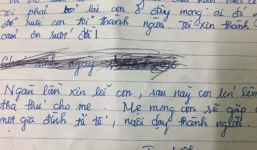 Tôi phải bỏ lại con ở đây mong ai đó
con tôi thành người. Tôi xin thành
cảm ơn suốt đời!
ngay
Ngàn lần xin lỗi con, sau này con lớn lên
tha thứ cho mẹ. Mẹ mong con sẽ gặp
một gia đình tử tế, nuôi dạy thành người.